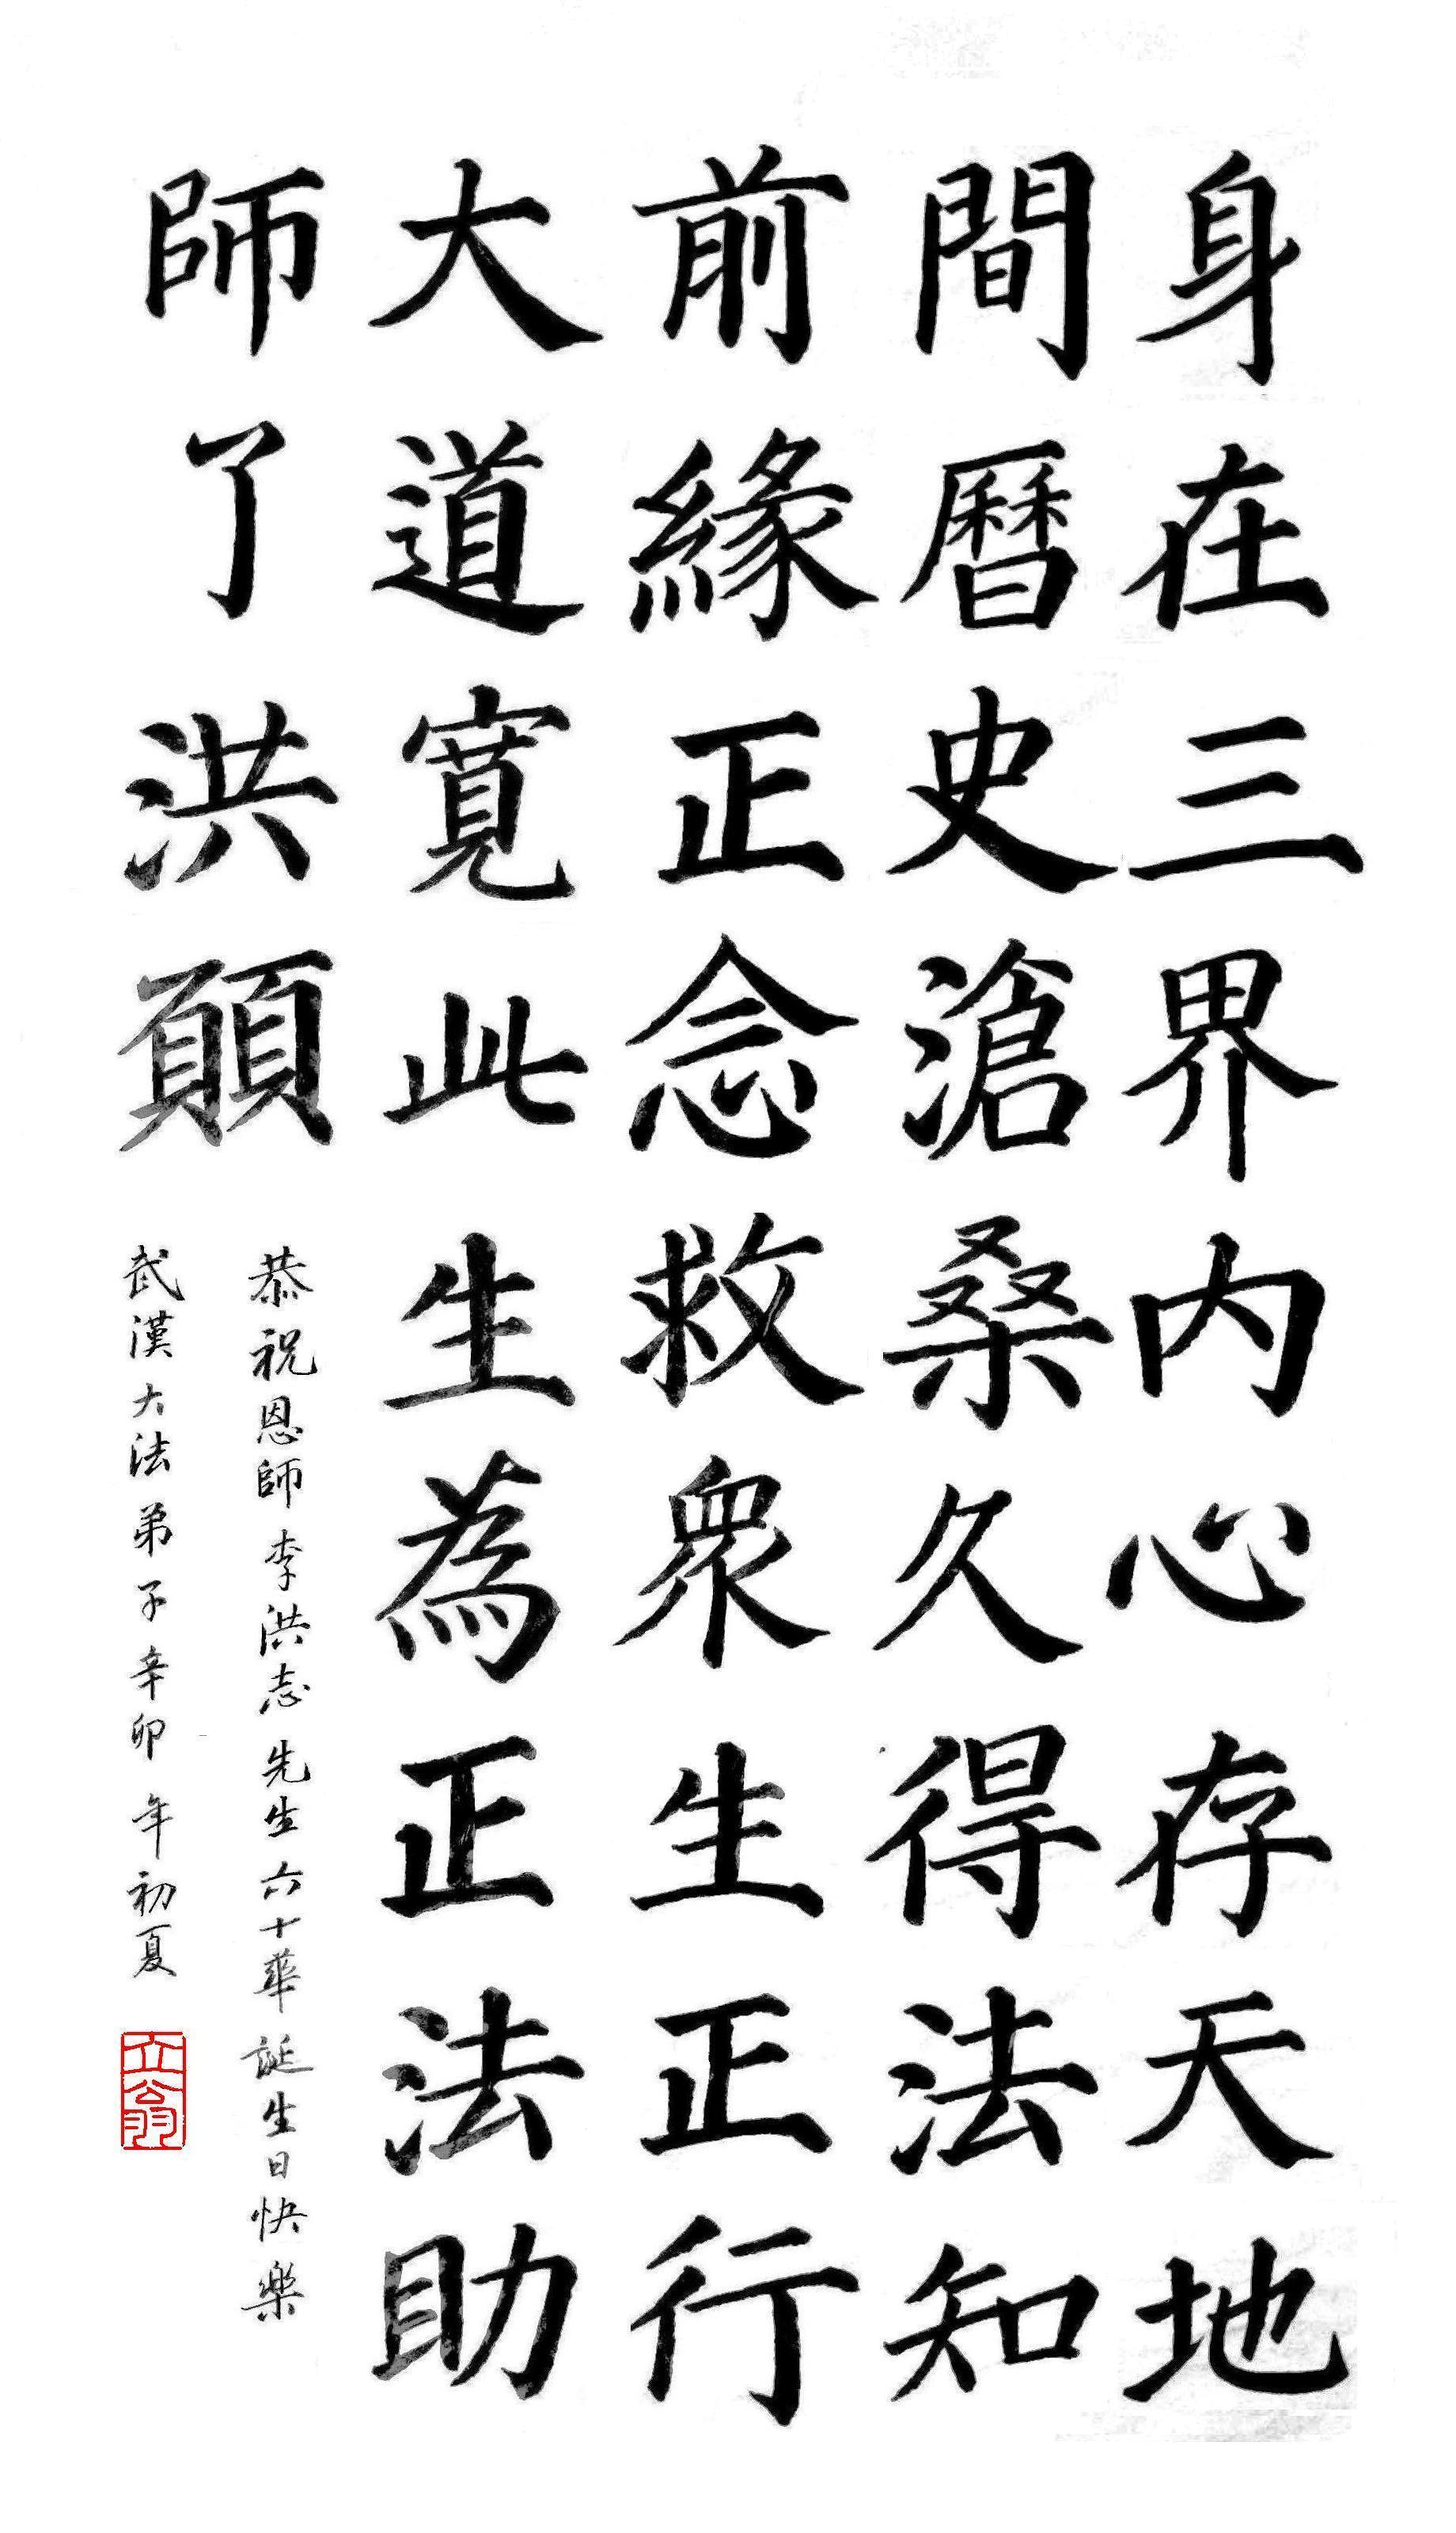 身在三界内心存天地
間曆史滄桑久得法知
前緣正念救衆生正行
大道寬此生為正法助
師了洪願
恭祝恩師李洪志先生六十華誕生日快樂
武漢大法弟子辛卯年初夏
立翁